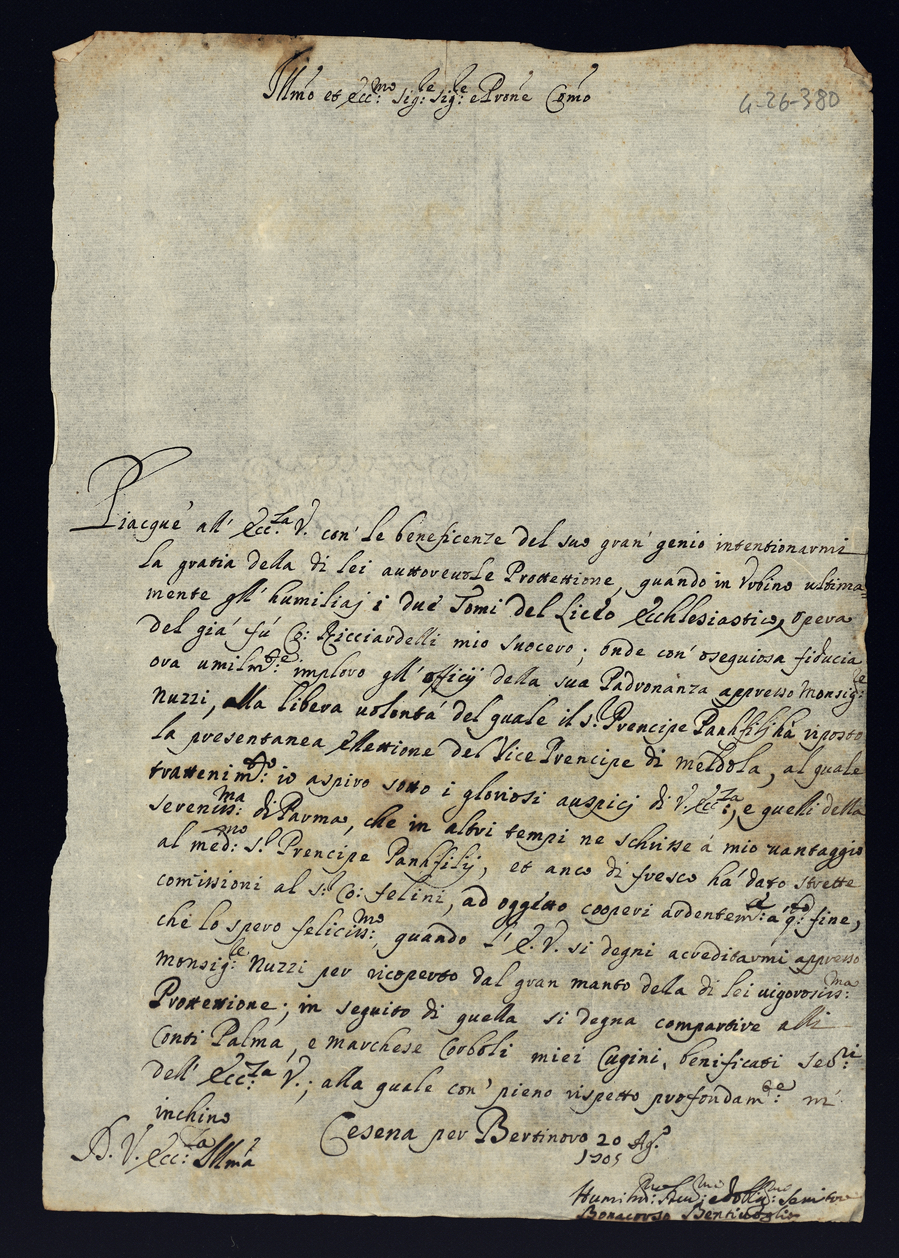 Illmo et Ecc:mo Sig:re Sig:re e Prone Comō
4-26-380
Piacque all' Ecc:za V. con' le beneficenze del suo gran' genio intentionarmi
la gratia della di lei auttoreuole Prottettione, quando in Vrbino ultima=
mente gll' humiliaj i due Tomi del Liceo Ecchlesiastico, opera
del già fù Co: Ricciardelli mio suocero; onde con' oseguiosa fiducia
ora umilm:te imploro gll' officij della sua Padronanza appresso Monsig:re
Nuzzi, alla libera uolontà del quale il S.r Prencipe Panhfilij hà riposto
la presentanea ellettione del Vice Prencipe di Meldola, al quale
trattenim:to io aspiro sotto i gloriosi auspicj di V. Ecc:za, e quelli della
sereniss:ma di Parma, che in altri tempi ne schrisse à mio uantaggio
al med:mo S.r Prencipe Panhfilij, et anco di fresco hà dato strette
comissioni al S.r Co: Felini, ad oggetto cooperi ardentem:te a q:to fine,
che lo spero feliciss:mo, quando l' E. V. si degni acreditarmi appresso
Monsig:re Nuzzi per ricoperto dal gran manto della di lei uigorosiss:ma
Prottettione; in seguito di quella si degna compartire alli
Conti Palma, e Marchese Corboli miei Cugini, benificati ser:ri
dell' Ecc:za V.; alla quale con' pieno rispetto profondam:te m'
inchino
D. V. Ecc:za Illma
Cesena per Bertinoro 20 Ag.o
1705
Humiliss:mo e Seruitore
Bonacorso Bentiuoglio